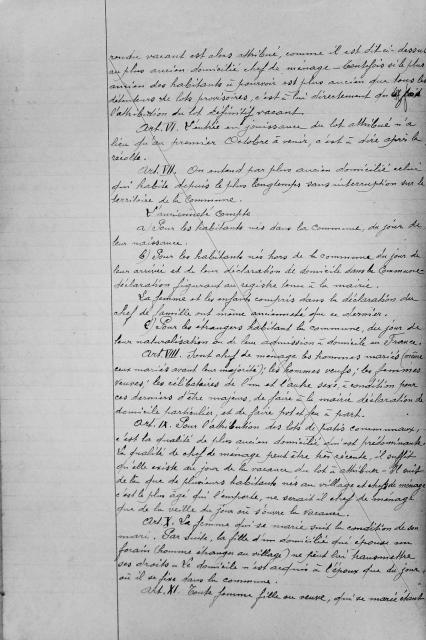 rendu vacant est alors attribué, comme il est dit ci-dessus
au plus ancien domicilié chef de ménage - Toutefois si le plus
ancien des habitants à pourvoir est plus ancien que tous les
détenteurs de lots provisoires, c'est à lui directement qu'est fait
l'attribution du lot définitif vacant.
Art. VI. L'entrée en jouissance du lot attribué n'a
lieu qu'au premier Octobre à venir, c'est à dire après la
récolte.
Art. VII. On entend par plus ancien domicilié celui
qui habite depuis le plus longtemps sans interruption sur le
territoire de la Commune.
L'ancienneté compte
a) Pour les habitants nés dans la commune, du jour de
leur naissance.
b) Pour les habitants nés hors de la commune du jour de
leur arrivée et de leur déclaration de domicile dans la Commune
déclaration figurant au registre tenu à la mairie.
La femme et les enfants compris dans la déclaration du
chef de famille ont même ancienneté que ce dernier.
c) Pour les étrangers habitant la commune, du jour de
leur naturalisation ou de leur admission à domicile en France.
Art. VIII. Sont chef de ménage les hommes mariés (même
ceux mariés avant leur majorité); les hommes veufs; les femmes
veuves; les célibataires de l'un et l'autre sexe, à condition pour
ces derniers d'être majeurs, de faire à la mairie déclaration de
domicile particulier, et de faire pot et feu à part.
Art. IX. Pour l'attribution des lots de patis communaux,
c'est la qualité de plus ancien domicilié qui est prédominante
La qualité de chef de ménage peut être très récente, il suffit
qu'elle existe au jour de la vacance du lot à attribuer - Il suit
de là que de plusieurs habitants nés au village et chefs de ménage
c'est le plus âgé qui l'emporte, ne serait-il chef de ménage
que de la veille du jour où s'ouvre la vacance.
Art. X. La femme qui se marie suit la condition de son
mari. Par suite, la fille d'un domicilié qui épouse un
forain (homme étranger au village) ne peut lui transmettre
ses droits - Le domicile n'est acquis à l'époux que du jour
où il se fixe dans la commune.
Art. XI. Toute femme fille ou veuve, qui se marie étant